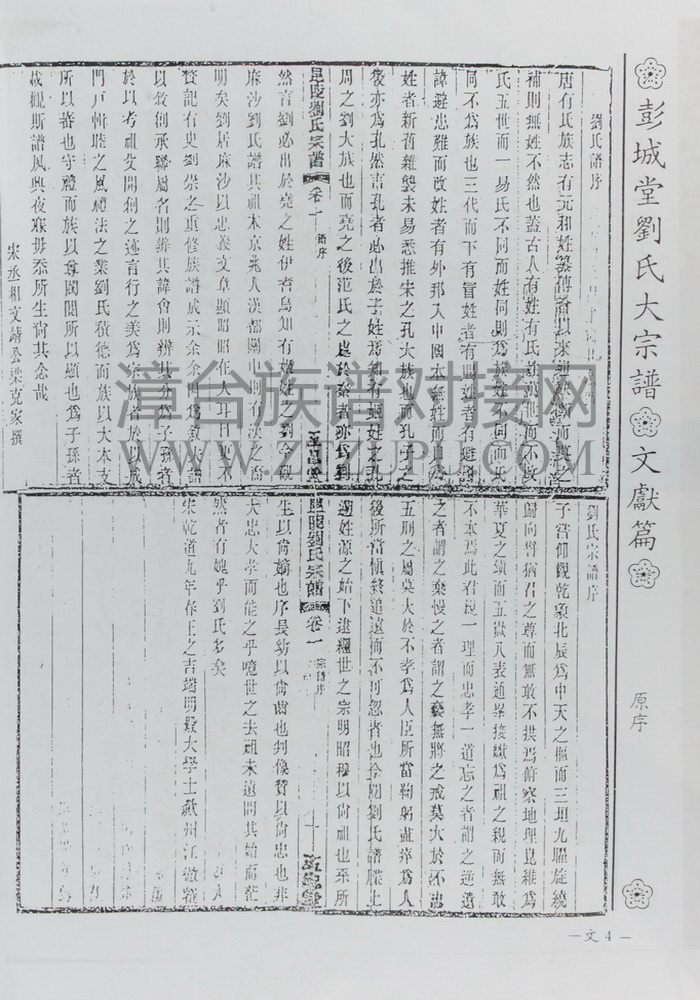 彭城堂劉氏大宗譜 文獻篇
原序
劉氏譜序
唐有氏族志有元和姓纂
補則無姓不然也蓋古人有姓有氏
氏五世而一易氏不同而姓同則爲族姓不同而氏
同不爲族也三代而下有冒姓者有賜姓者有避
諱避患難而改姓者有外邦入中國本無姓而自
姓者新舊雜襲未易悉推宋之孔大族也而孔子之
後亦爲孔然言孔者必出於子姓焉知有姬姓之孔
周之劉大族也而堯之後范氏之處於秦者亦爲劉
昆陵劉氏宗譜 卷一 譜序
然言劉必出於堯之姓伊耆烏知有姬姓之劉今觀
麻沙劉氏譜其祖本京兆人漢都關中則有漢之裔
明矣劉居麻沙以忠義文章顯昭昭在人耳目史不
於以考祖父開創之迹言行之美爲宗族者於以成
門戶輯睦之風禮法之業劉氏積德而族以大本支
所以蕃也守禮而族以尊閥閱所以顯也爲子孫者
哉觀斯譜夙興夜寐毋忝所生尚其念哉
宋丞相文靖公梁克家撰
劉氏宗譜序
子嘗仰觀乾象北辰爲中天之樞而三垣九曜旋繞
歸向譬猶君之尊而無敢不拱焉俯察地理崑維爲
華夏之鎮而五嶽八表通畢接繳爲祖之親而無敢
不本焉此君親一理而忠孝一道忘之者謂之逆遺
之者謂之棄慢之者謂之褻無將之戒莫大於不忠
五刑之屬莫大於不孝爲人臣所當鞠躬盡瘁爲人
後所當慎終追遠而不可忽者也今閱劉氏譜牒上
遡姓源之始下逮繼世之宗明昭穆以尚祖也系所
劉氏宗譜 卷一 宗譜序
生以尚嫡也序長幼以尚齒也列像贊以尚忠也非
大忠大孝而能之乎噫世之去祖未遠問其始而茫
然者有媿乎劉氏多矣
宋乾道九年春王之吉端明殿大學士
漳台族谱对接网
WWW.ZTZLPU.COM
—文4—